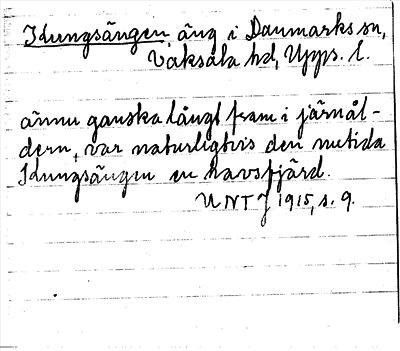 Idungsängen, äng i Danmarks sn,
Vaksala hd, Upps. l.
ännu ganska långt fram i järnål-
dern, var naturligtvis den nutida
Idungsängen en havsfjärd.
UNTJ 1915, s. 9.